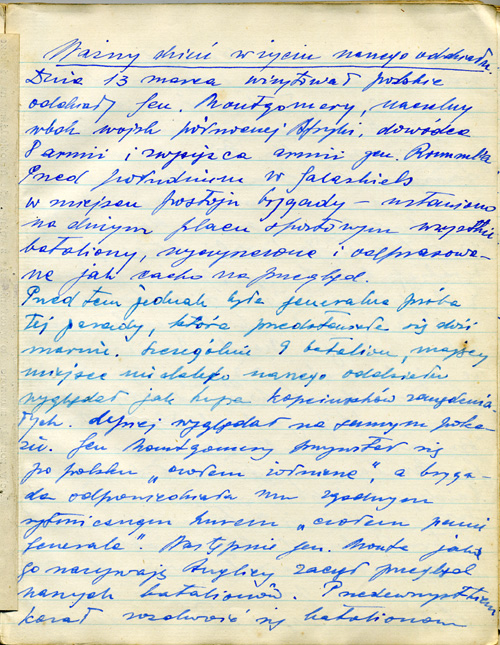 Ważny dzień w życiu naszego oddziału.
Dnia 13 marca wizytował polskie
oddziały Gen. Montgomery, naczelny
wódz wojsk północnej Afryki, dowódca
8 armii i zwycięzca armii gen. Rommla.
Przed południem w Galashiels
w miejscu postoju brygady – ustawiono
na dużym placu sportowym wszystkie
bataliony, wyczyszczone i odprasowa-
ne jak cacko na przegląd.
Przed tem jednak była generalna próba
tej parady, która przedstawiała się dość
marnie. Szczególnie 9 batalion, mający
miejsce niedaleko naszego oddziału
wyglądał jak kupa kopciuszków
Lepiej wyglądał na samym poka-
zie. Gen Montgomery przywitał się
po polsku „czołem żołnierze", a bryga-
da odpowiedziała mu zgodnym
rytmicznym chórem „czołem panie
Generale". Następnie gen. Monta jak
go nazywają Anglicy zaczął przegląd
naszych batalionów. Przedewszystkiem
kazał rozluźnić się batalionom